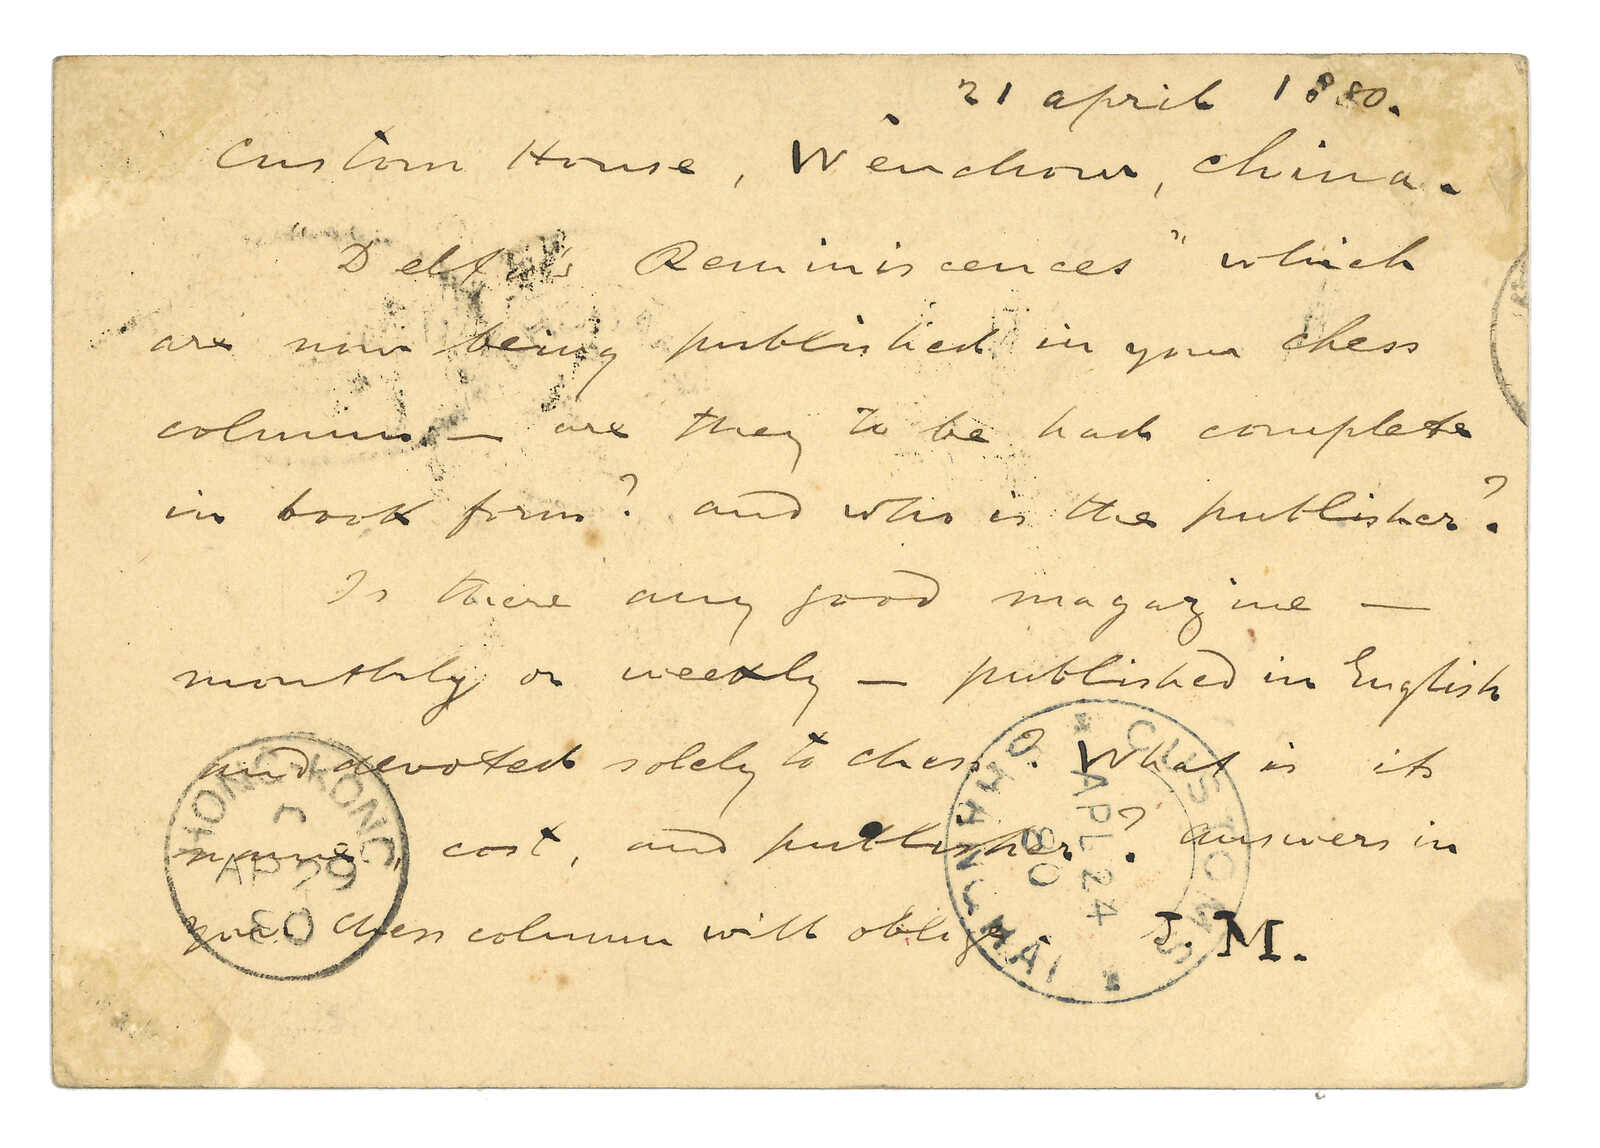 21 april 1880.
Custom House, Wenchow, China.
"Delta's Reminiscences" which
are now being published in your chess
column — are they to be had complete
in book form? and who is the publisher?
Is there any good magazine —
monthly or weekly — published in English
and devoted solely to chess? What is its
name, cost, and publisher? answers in
your chess column will oblige. J. M.
HONG KONG
C
AP 29
80
CUSTOMS
* APL 24 80
SHANGHAI